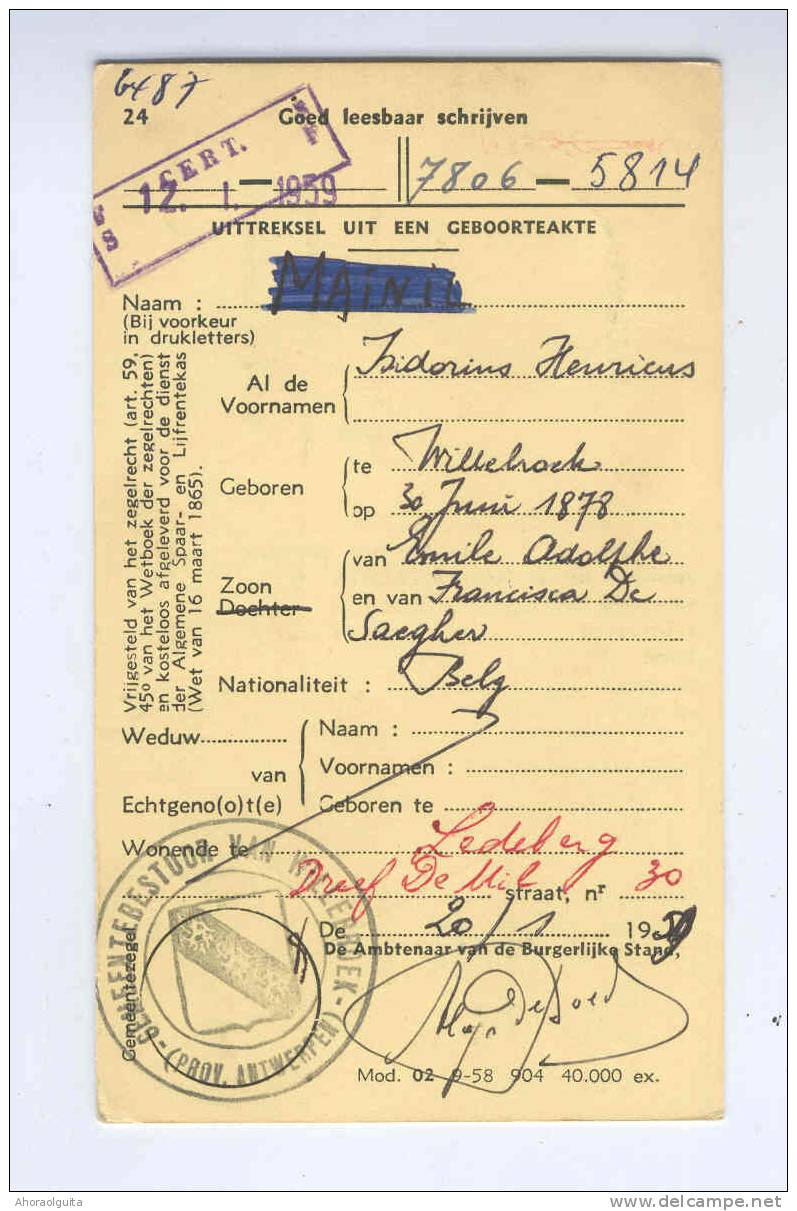 6487
24 Goed leesbaar schrijven
CERT.
12. 1. 1959
7806 — 5814
UITTREKSEL UIT EEN GEBOORTEAKTE
Naam : MAINIL
(Bij voorkeur
in drukletters)
Al de
Voornamen
Isidorius Henricus
Geboren
te Willebroek
op 30 Juni 1878
Zoon
Dochter
van Emile Adolphe
en van Francisca De
Saegher
Nationaliteit : Belg
Weduw
van
Echtgeno(o)t(e)
Naam :
Voornamen :
Geboren te
Wonende te Ledeberg
Dreef De Mil straat, nr 30
De 20/1 1959
De Ambtenaar van de Burgerlijke Stand,
Vrijgesteld van het zegelrecht (art. 59,
45º van het Wetboek der zegelrechten)
en kosteloos afgeleverd voor de dienst
der Algemene Spaar- en Lijfrentekas
(Wet van 16 maart 1865).
Gemeentezegel
GEMEENTEBESTUUR VAN WILLEBROEK
-(PROV. ANTWERPEN)-
Mod. 02 9-58 904 40.000 ex.
Ahoraolguita
delcampe.net